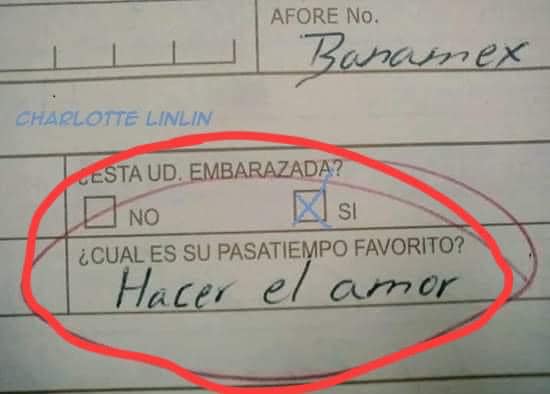 AFORE No.
Banamex
CHARLOTTE LINLIN
¿ESTA UD. EMBARAZADA?
NO X SI
¿CUAL ES SU PASATIEMPO FAVORITO?
Hacer el amor